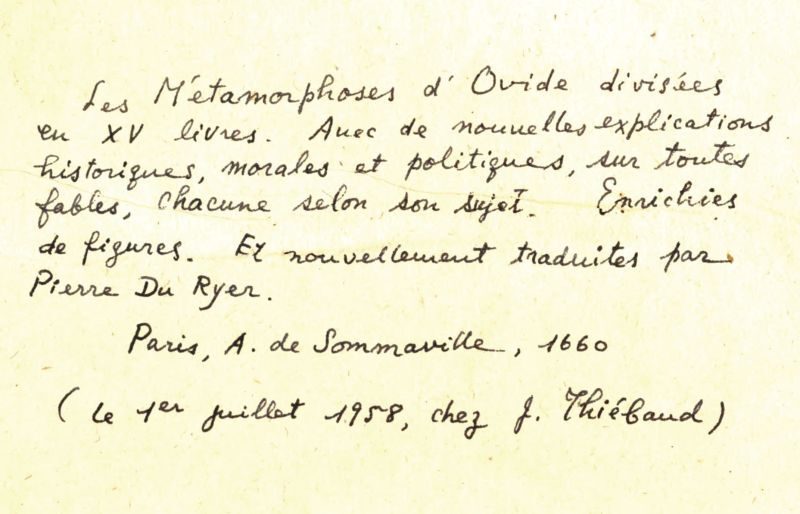 Les Métamorphoses d'Ovide divisées
en XV livres. Avec de nouvelles explications
historiques, morales et politiques, sur toutes
fables, chacune selon son sujet. Enrichies
de figures. Et nouvellement traduites par
Pierre Du Ryer.
Paris, A. de Sommaville, 1660
(le 1er juillet 1958, chez J. Thiébaud)